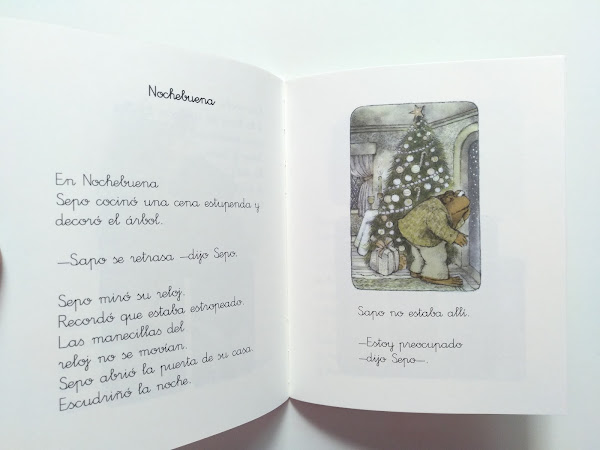 Nochebuena
En Nochebuena
Sepo cocinó una cena estupenda y
decoró el árbol.
—Sapo se retrasa —dijo Sepo.
Sepo miró su reloj.
Recordó que estaba estropeado.
Las manecillas del
reloj no se movían.
Sepo abrió la puerta de su casa.
Escudriñó la noche.
Sapo no estaba allí.
—Estoy preocupado
—dijo Sepo—.